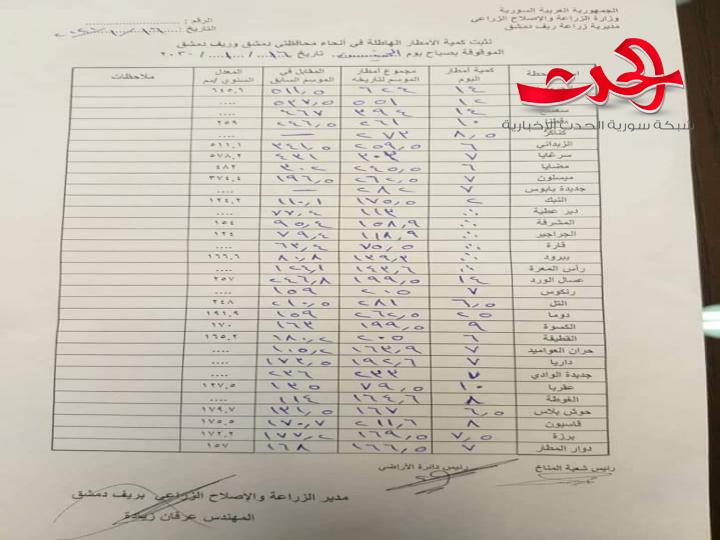 الجمهورية العربية السورية
وزارة الزراعة والإصلاح الزراعي
مديرية زراعة ريف دمشق
الرقم :
التاريخ
نثبت كمية الأمطار الهاطلة في أنحاء محافظتي دمشق وريف دمشق
الموقوفة بصباح يوم الخميس تاريخ ١٦ / ١ / ٢٠٢٠
المحطة كمية أمطار اليوم مجموع أمطار الموسم لتاريخه المقابل في الموسم السابق المعدل السنوي/مم ملاحظات
١٤ ٦٢٤ ٥١١,٥ ٦٤٥,٦
١٢ ٥٥١ ٥٣٧,٥ ....
١٤ ٣٩٤ ٤٦٧ ....
١٠ ٢٦١ ٢٤٦,٥ ٢٥٩
كناكر ٨,٥ ٢٧٣ — ....
الزبداني ٦ ٢٥٩,٥ ٣٤١,٥ ٥١١,١
سرغايا ٧ ٣٠٣ ٤٣١ ٥٧٨,٢
مضايا ٦ ٢٤٥,٥ ٣٠٢ ٤٨٢
ميسلون ٧ ٢٦٢,٥ ١٩٦,٥ ٣٧٤,٤
جديدة يابوس ٧ ٢٨٢ — ....
النبك ٢ ١٧٥,٥ ١١٠,١ ١٢٤,٢
دير عطية ١١٣ ٧٧,٤ ....
المشرفة ١٥٨,٩ ٩٥,٤ ١٥٤
الجراجير ١١٨,٩ ٧٩,٤ ١٢٤
قارة ٧٥,٥ ٦٣,٤ ....
يبرود ١٣٩,٣ ٨٠,٨ ١٦٦,٦
رأس المعرة ١٤٣,٦ ١٢٦,١ ....
عسال الورد ١٤ ١٩٩,٥ ٢٤٦,٨ ٢٥٧
رنكوس ٧ ٢٠٥ ١٥٩ ....
التل ٦,٥ ٢٨١ ٢١٠,٥ ٢٤٨
دوما ٢٥ ٢٦٢,٥ ١٥٩ ١٩١,٩
الكسوة ٩ ١٩٩,٥ ١٦٣ ١٧٠
القطيفة ٦ ٢٠٥ ١٨٠,٢ ١٦٥,٢
حران العواميد ٧ ١٦٣,٩ ١٠٥,٢ ....
داريا ٧ ١٩٢,٦ ١٧٢,٥ ....
جديدة الوادي ٧ ٢٣٣ ٢٣٦ ....
عقربا ١٠ ٧٩,٥ ١٣٥ ١٢٧,٥
الغوطة ٨ ١٦٤,٦ ١١٤ ....
حوش بلاس ٦,٥ ١٦٧ ١٣١,٥ ١٧٩,٧
قاسيون ٨ ٢١١,٦ ١٧٠,٧ ١٧٥,٥
برزة ٧,٥ ١٦٩,٥ ١٧٧,٢ ١٧٢,٢
دوار المطار ٧ ١٦٦,٥ ١٦٨ ١٥٧
رئيس شعبة المناخ
رئيس دائرة الأراضي
مدير الزراعة والإصلاح الزراعي بريف دمشق
المهندس عرفان زيادة
الحدث
شبكة سورية الحدث الإخبارية